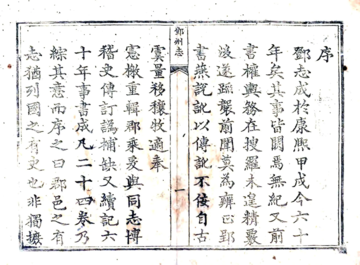 序
鄧志成於康熙甲戌今六十
年矣其事皆闕焉無紀又前
書榷輿務在搜羅未遑精覈
後遂踵襲前聞莫為正郢
書燕說訛以傳訛不佞自古
鄧州志
一
虞量移穰牧適奉
憲檄重輯郡乘爰與同志博
稽史傳訂譌補缺又續記六
十年事書成凡二十四卷乃
綜其意而序之曰郡邑之有
志猶列國之有史也非獨摭